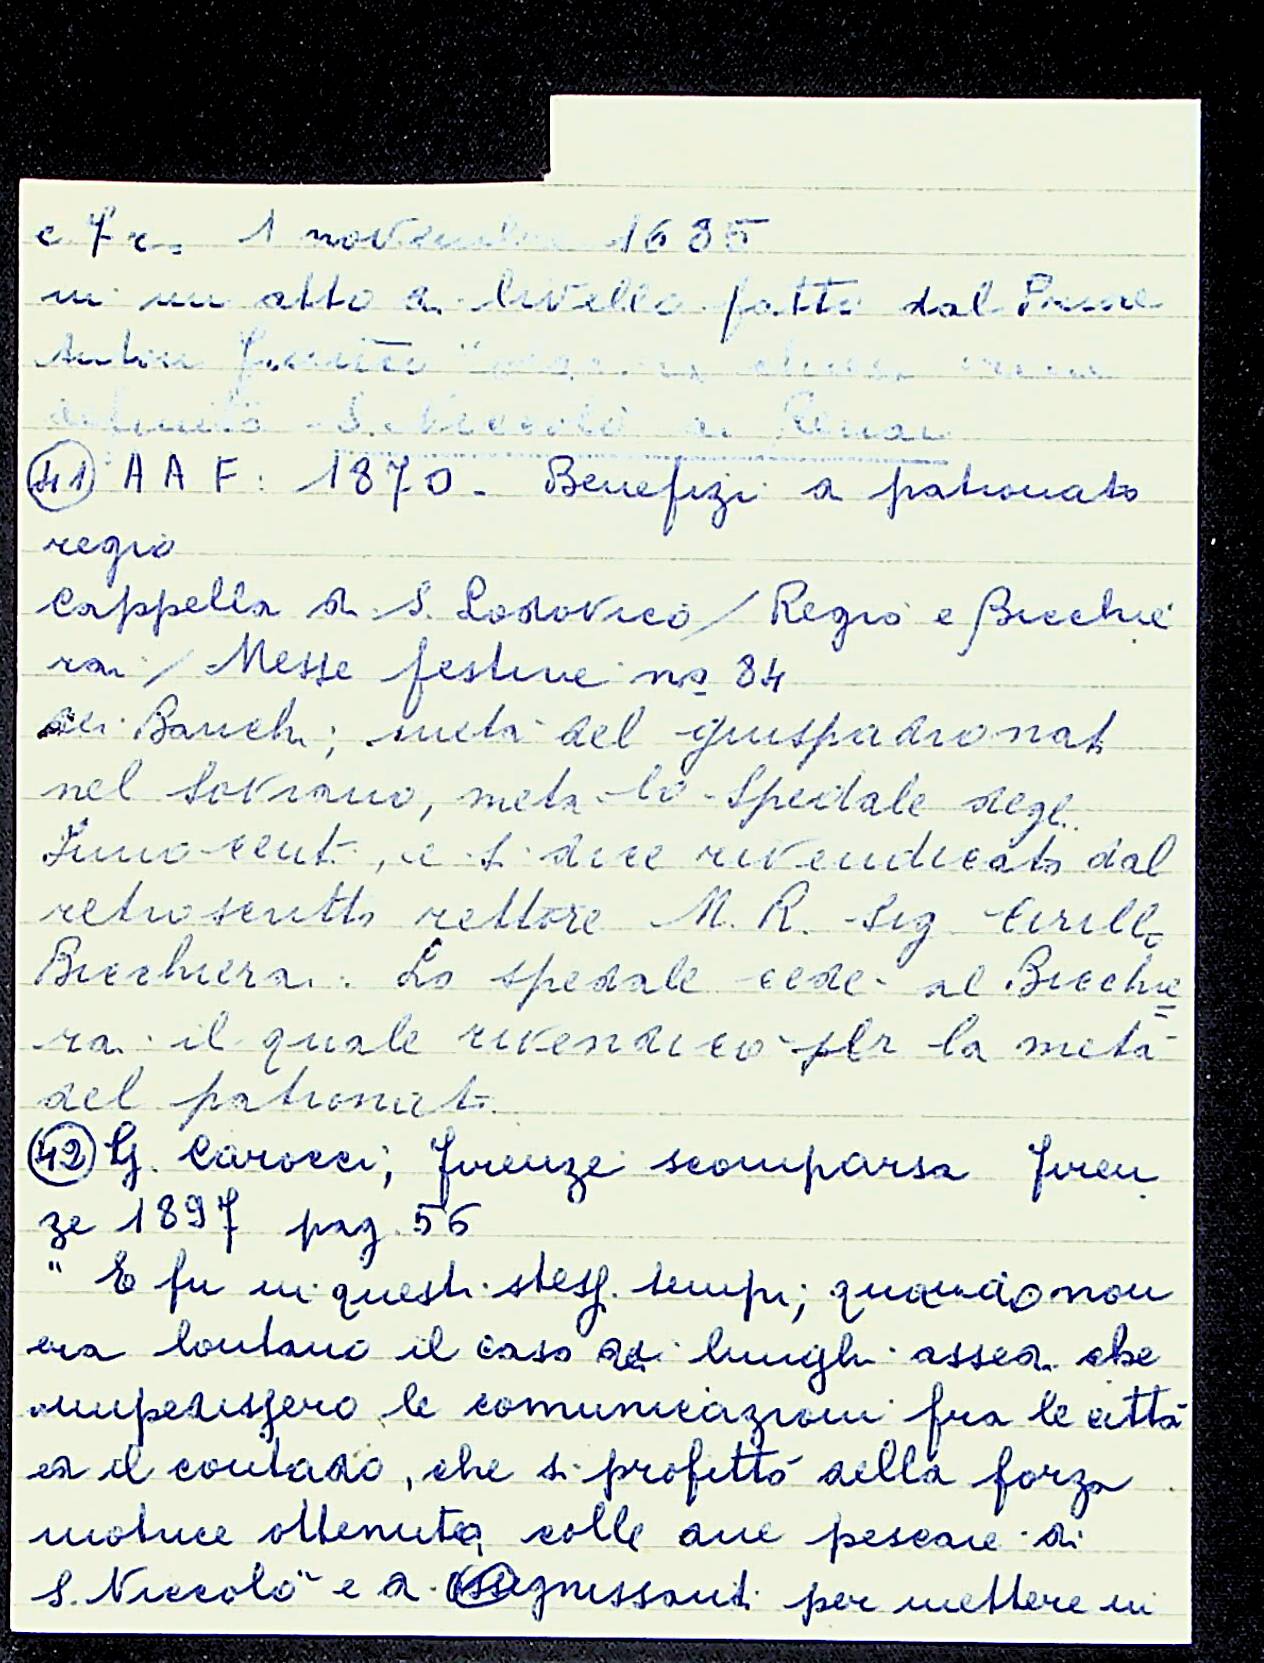 c 7 r. 1 novembre 1685
in un atto di livello fatto dal Priore
S. Niccolò di
41 A A F: 1870 - Benefizi di patronato
regio
Cappella di S. Lodovico / Regio e Bicchie
rai / Messe festive no 84
dei Banchi; metà del giuspadronato
nel Sovrano, metà lo Spedale degl.
Innocenti, e si dice rivendicato dal
retroscritto rettore M. R. Sig Cirillo
Bicchierai. Lo spedale cede al Bicchie=
rai il quale rivendicò per la metà
del patronato.
42 G. Carocci; Firenze scomparsa Firen
ze 1897 pag. 56
" E fu in questi stessi tempi; quando non
era lontano il caso di lunghi assedi che
impedissero le comunicazioni fra le città
ed il contado, che si profittò della forza
motrice ottenuta colle due pescaie di
S. Niccolò e d' Ognissanti per mettere in